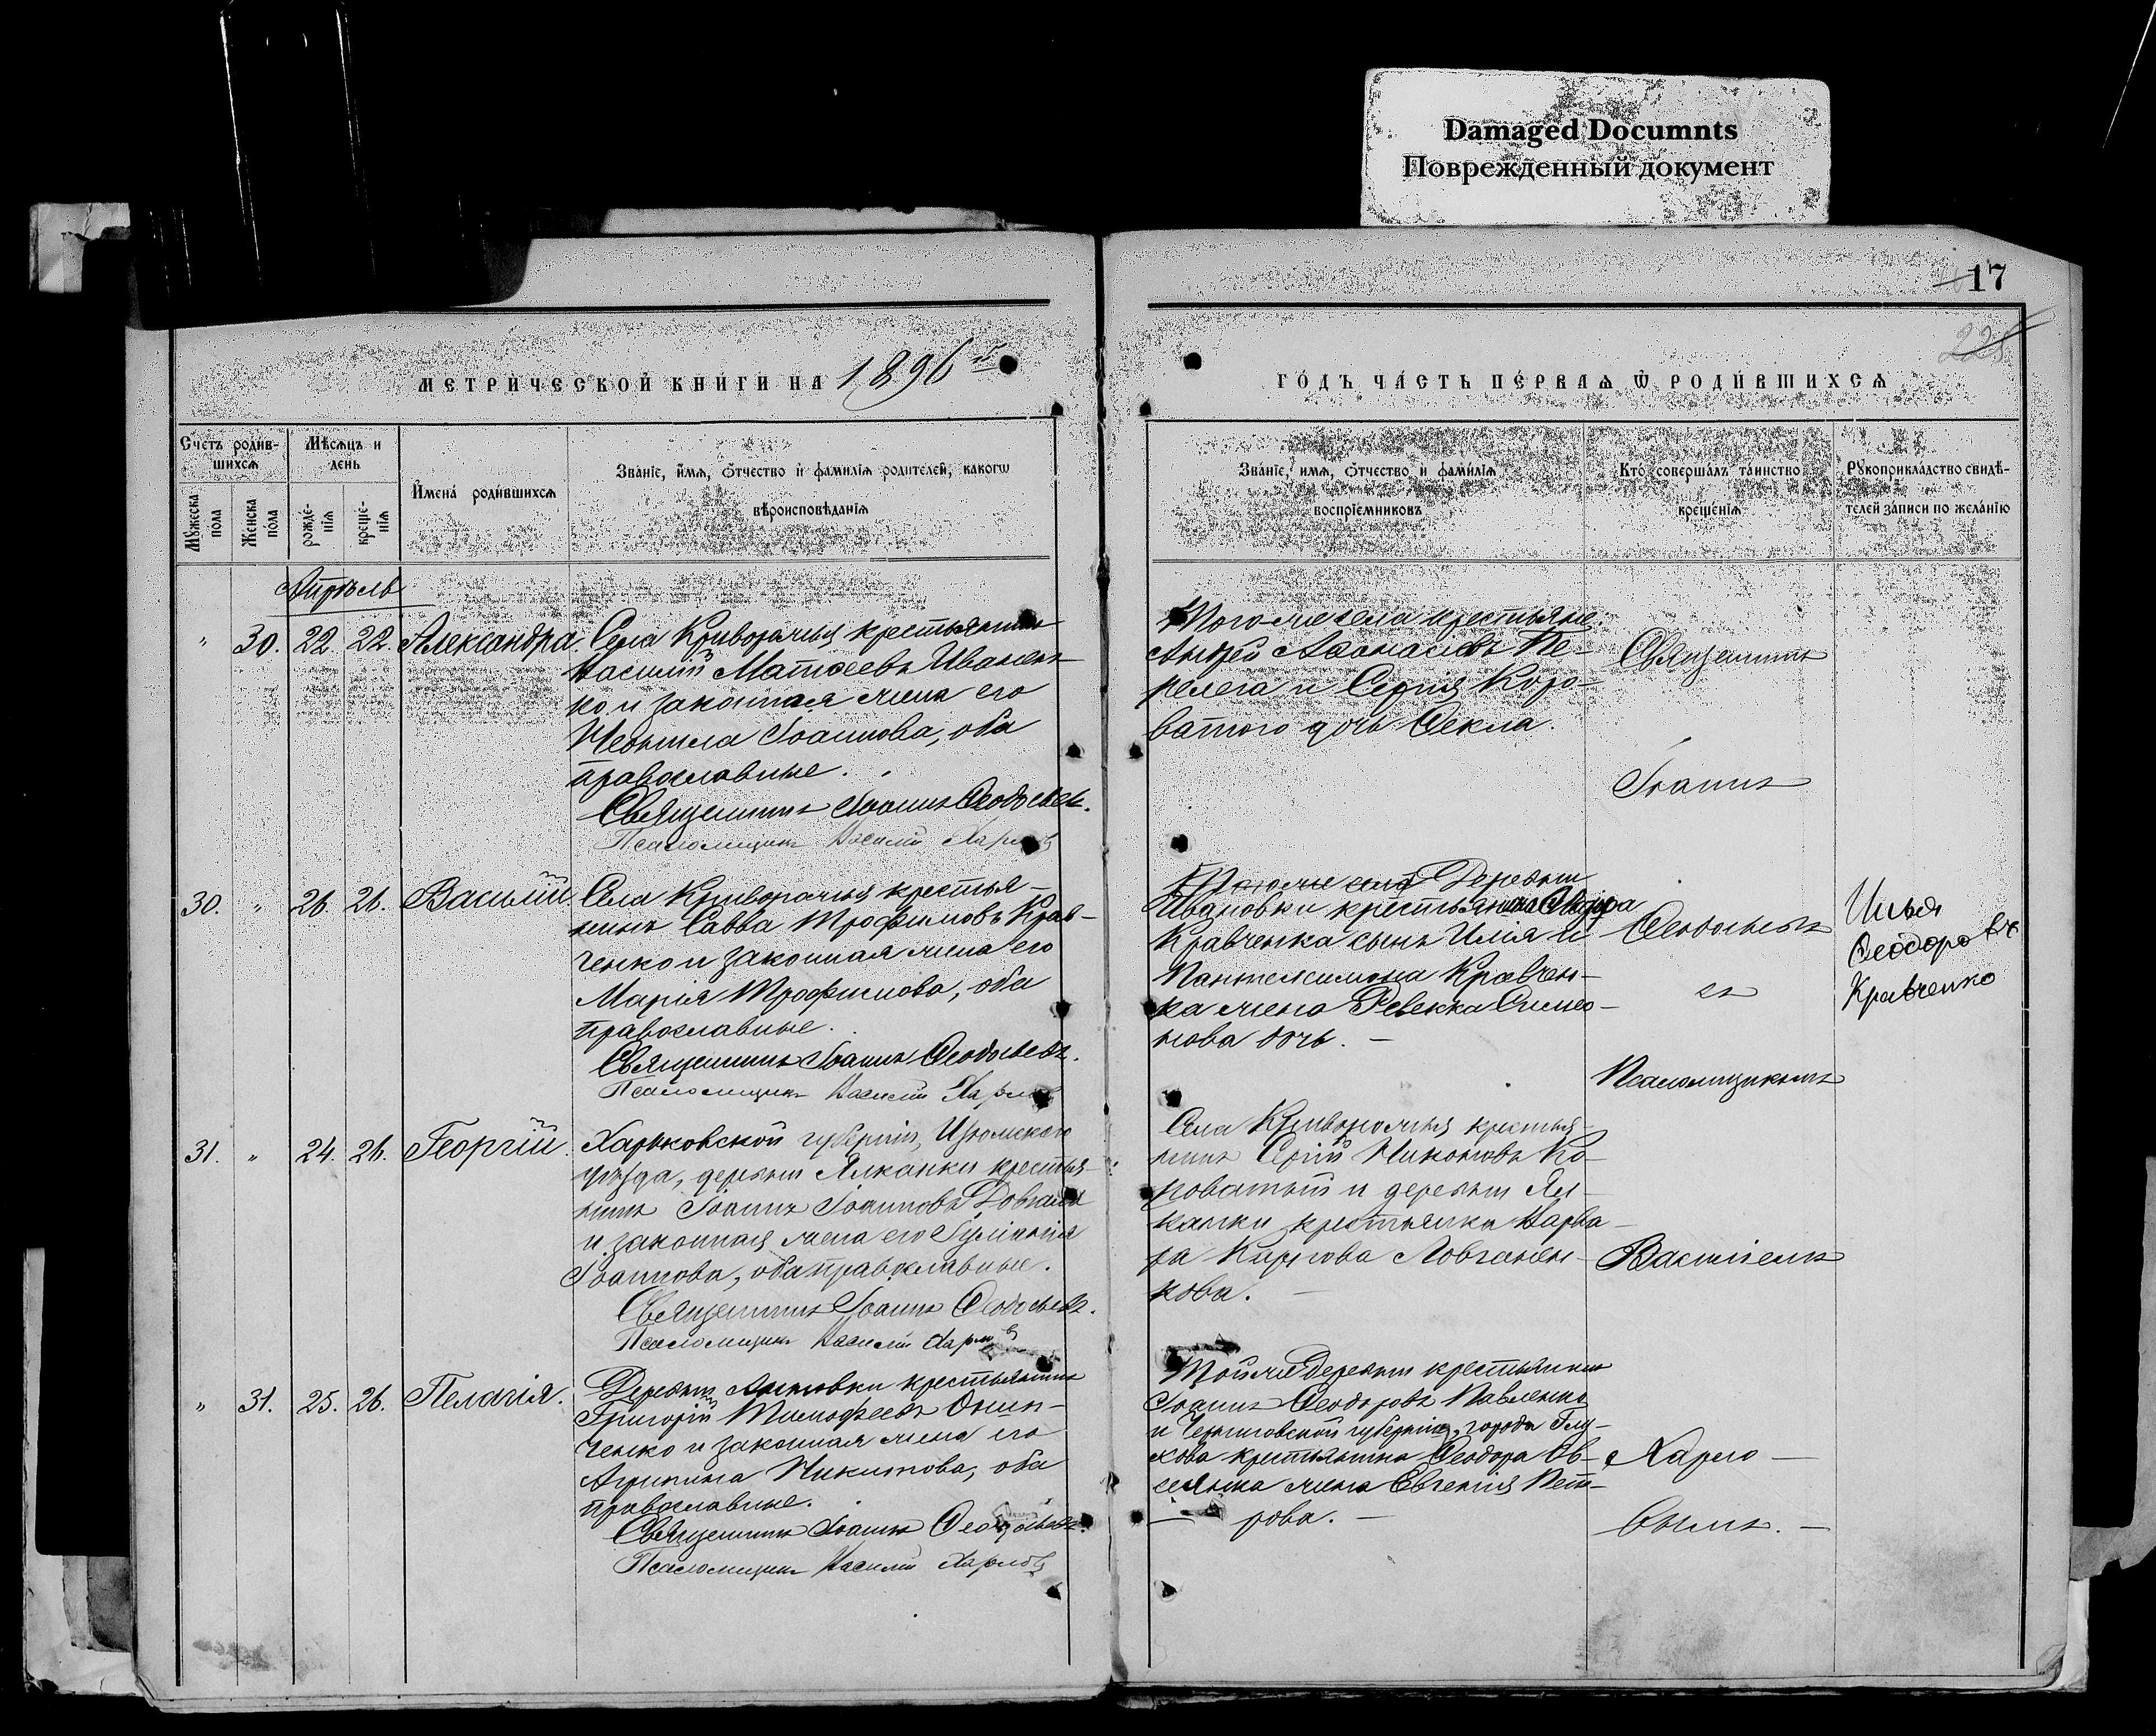 Damaged Documnts
Поврежденный документ
17
225
МЕТРИЧЕСКОЙ КНИГИ НА 1896 й
ГОДЪ ЧАСТЬ ПЕРВАѦ Ѿ РОДИВШИХСѦ
Счетъ родив-
шихсѧ
Мꙋжеска
пола
Женска
пола
Мѣсѧцъ и
день
рожде-
нїѧ
креще-
нїѧ
Имена родившихсѧ
Званїе, имѧ, ѻтчество и фамилїѧ родителей, какогѡ
вѣроисповѣданїѧ
Званїе, имѧ, ѻтчество и фамилїѧ
воспрїемниковъ
Кто совершалъ таинство
крещенїѧ
Рꙋкоприкладство свидѣ-
телей записи по желанїю
Апрѣль
" 30. 22. 22. Александра.
Села Криворачья крестьянинъ
Василій Матѳеевъ Иванен-
ко и законная жена его
Неонила Іоаннова, оба
православные.
Священникъ Іоаннъ Ѳеодосьевъ.
Псаломщикъ Василій Харловъ
Того-же села крестьяне:
Андрей Аѳанасьевъ Пе-
релега и Сергія Коро-
ватого дочь Ѳекла.
30. " 26. 26. Василій
Села Криворачья крестья-
нинъ Савва Трофимовъ Крав-
ченко и законная жена его
Марія Трофимова, оба
православные.
Священникъ Іоаннъ Ѳеодосьевъ.
Псаломщикъ Василій Харловъ
Того же села Деревни
Ивановки крестьянина Ѳеодора
Кравченка сынъ Илія и
Пантелеимона Кравчен-
ка жена Ревекка Симео-
нова дочь. -
31. " 24. 26. Георгій.
Харьковской губерніи, Изюмскаго
уѣзда, деревни Ялканки крестья-
нинъ Іоаннъ Іоанновъ
и законная жена его Іуліанія
Іоаннова, оба православные.
Священникъ Іоаннъ Ѳеодосьевъ.
Псаломщикъ Василій Харловъ
Села Криворачья крестья-
нинъ Сергій Никоновъ Ко-
роватый и деревни Ял-
канки крестьянка Варва-
ра Карпова Ловганен-
кова. -
" 31. 25. 26. Пелагія.
Деревни крестьянинъ
Григорій Тимоѳеевъ Онип-
ченко и законная жена его
Агрипина Никитова, оба
православные.
Священникъ Іоаннъ Ѳеодосьевъ.
Псаломщикъ Василій Харловъ
Той-же деревни крестьянинъ
Іоаннъ Ѳеодоровъ Павленко
и Черниговской губерніи, города Глу-
хова крестьянина Ѳеодора Ов-
сеянка жена Евгенія Пет-
рова. -
Священникъ
Іоаннъ
Ѳеодосьевъ
съ
Псаломщикомъ
Василіемъ
Харло-
вымъ. -
Илья
Ѳеодоровъ
Кравченко